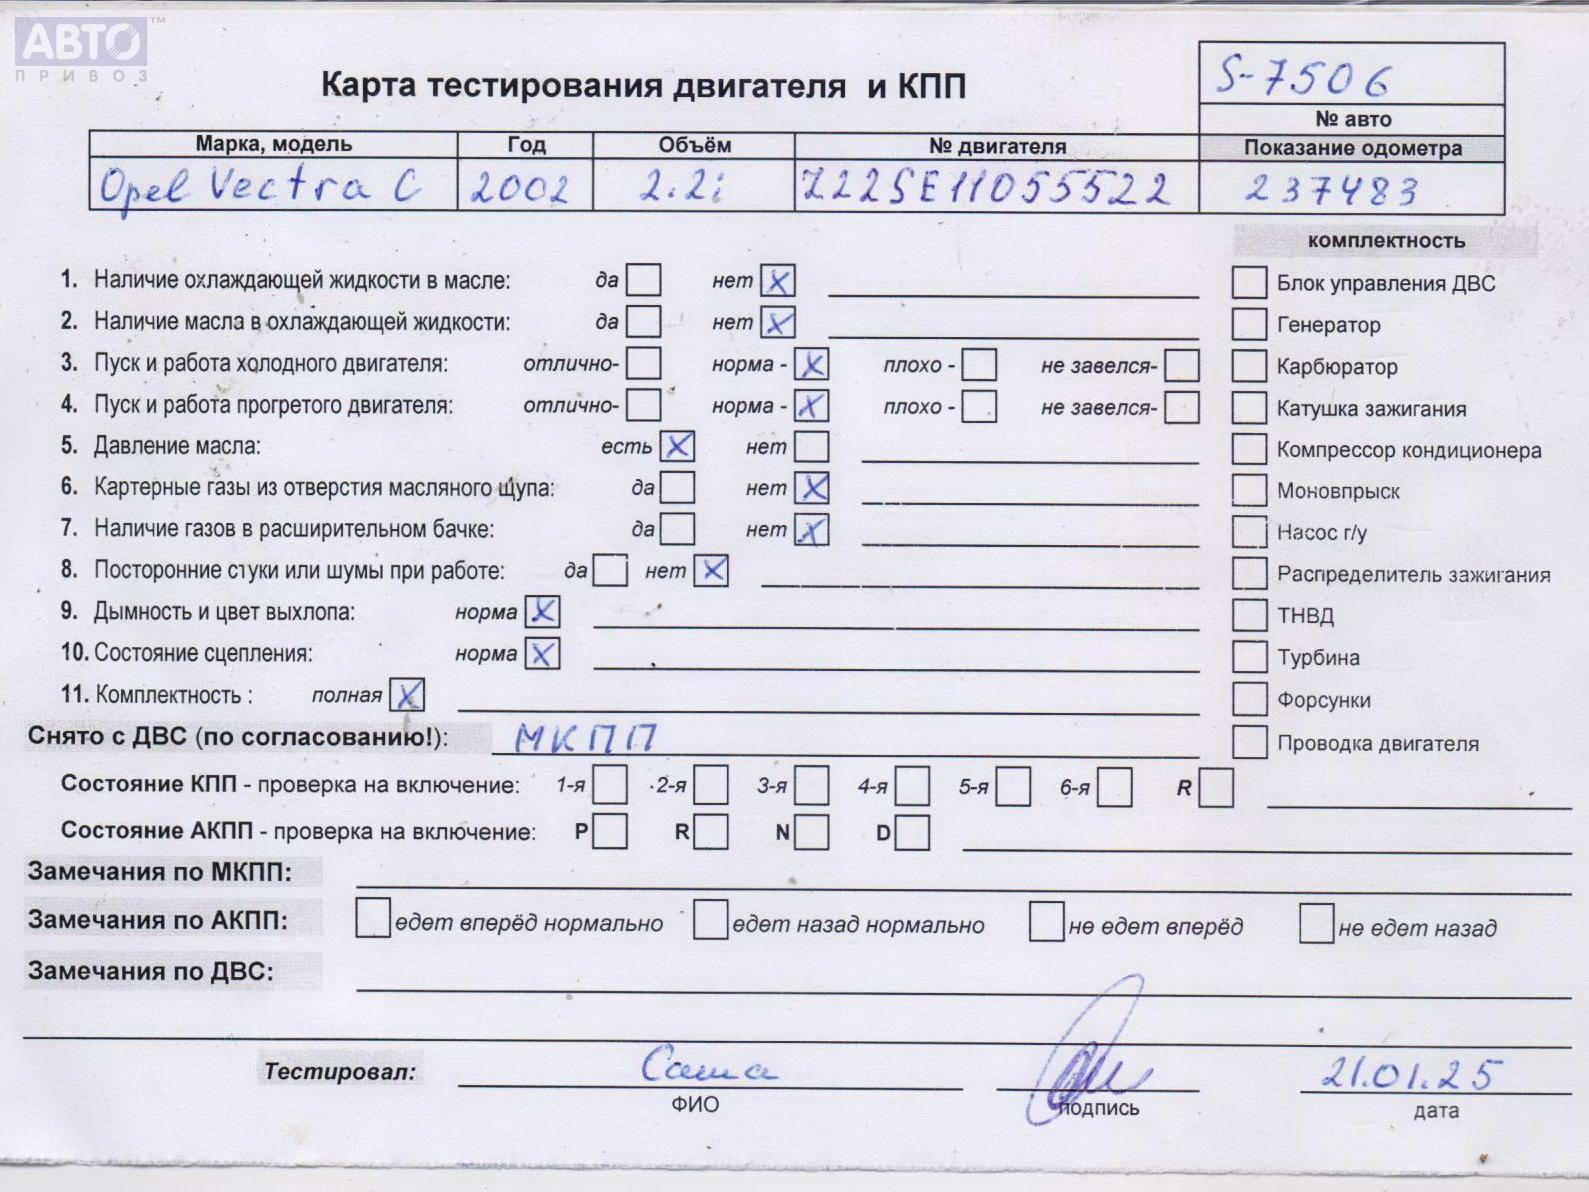 АВТО™
ПРИВОЗ
Карта тестирования двигателя и КПП
S-7506
№ авто
Марка, модель Год Объём № двигателя Показание одометра
Opel Vectra C 2002 2.2i Z22SE11055522 237483
комплектность
1. Наличие охлаждающей жидкости в масле: да нет X
Блок управления ДВС
2. Наличие масла в охлаждающей жидкости: да нет X
Генератор
3. Пуск и работа холодного двигателя: отлично- норма - X плохо - не завелся-
Карбюратор
4. Пуск и работа прогретого двигателя: отлично- норма - X плохо - не завелся-
Катушка зажигания
5. Давление масла: есть X нет
Компрессор кондиционера
6. Картерные газы из отверстия масляного щупа: да нет X
Моновпрыск
7. Наличие газов в расширительном бачке: да нет X
Насос г/у
8. Посторонние стуки или шумы при работе: да нет X
Распределитель зажигания
9. Дымность и цвет выхлопа: норма X
ТНВД
10. Состояние сцепления: норма X
Турбина
11. Комплектность : полная X
Форсунки
Снято с ДВС (по согласованию!): МКПП
Проводка двигателя
Состояние КПП - проверка на включение: 1-я 2-я 3-я 4-я 5-я 6-я R
Состояние АКПП - проверка на включение: P R N D
Замечания по МКПП:
Замечания по АКПП: едет вперёд нормально едет назад нормально не едет вперёд не едет назад
Замечания по ДВС:
Тестировал: Саша 21.01.25
ФИО подпись дата